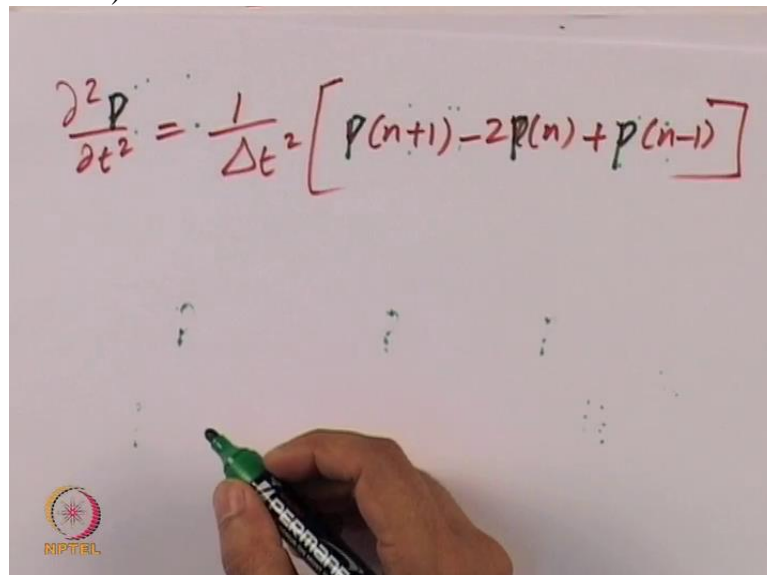 ∂²p/∂t² = 1/Δt² [p(n+1) - 2p(n) + p(n-1)]
PERMANE
NPTEL